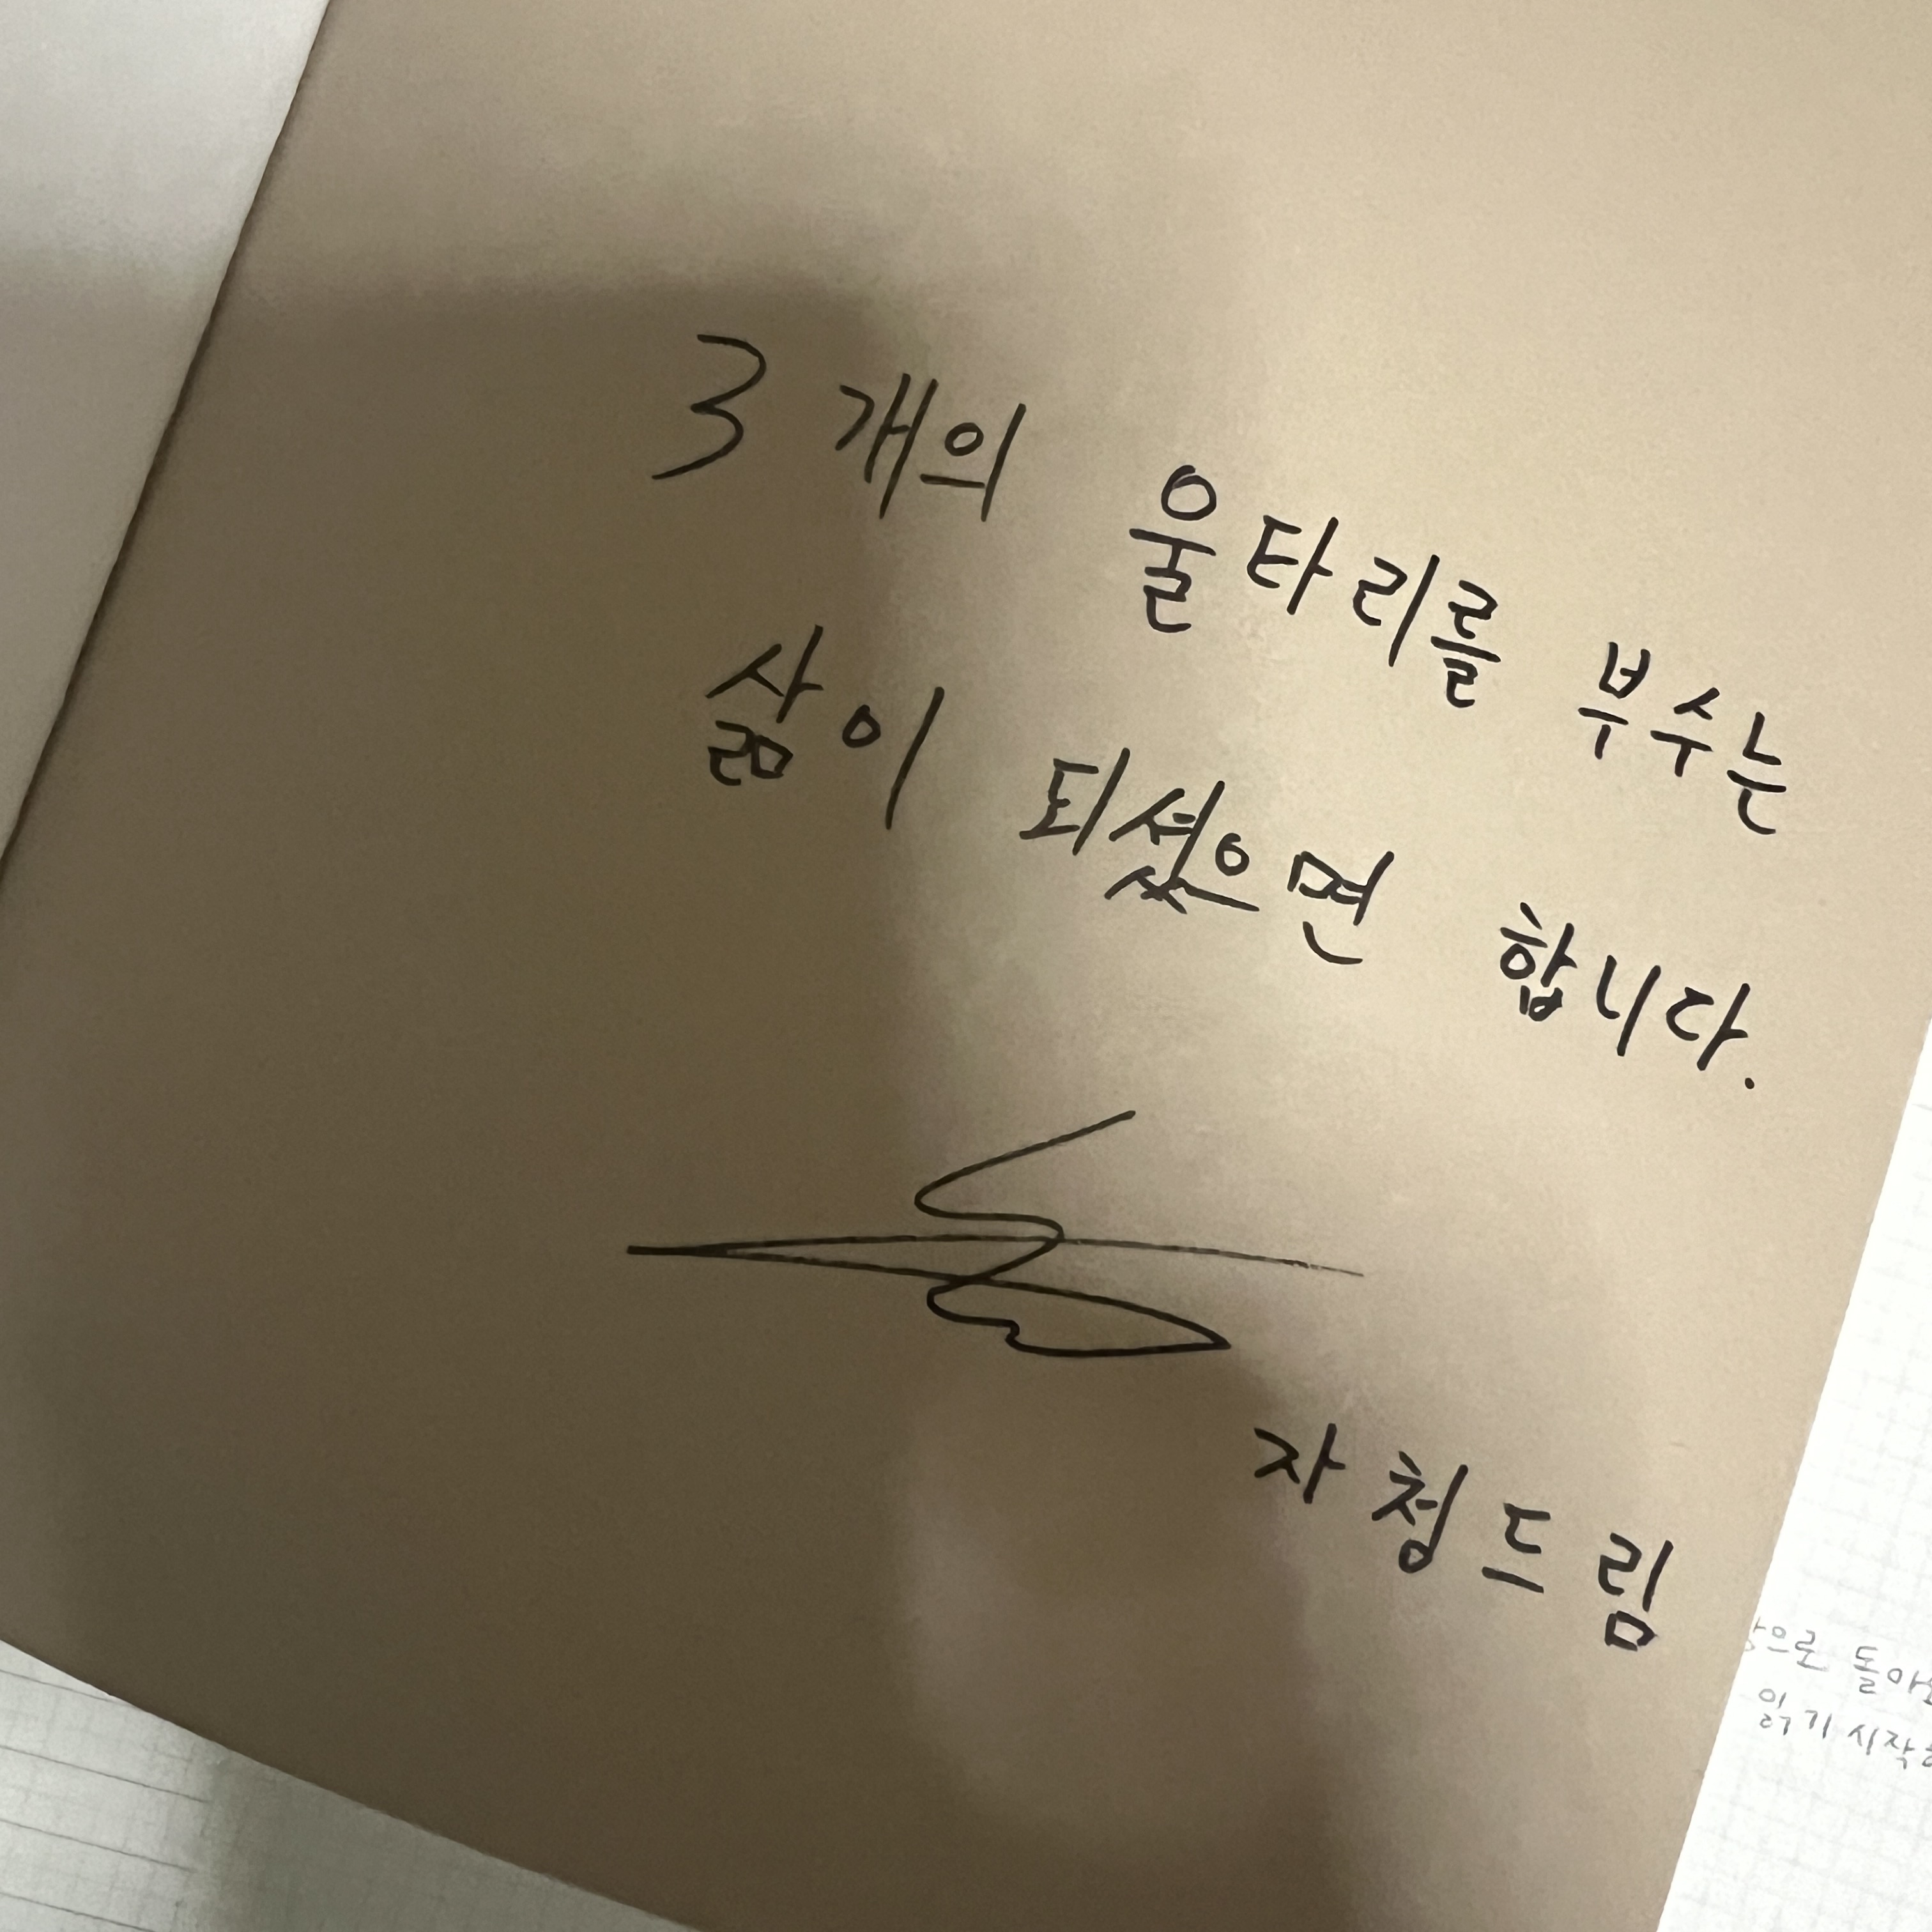 3개의 울타리를 부수는
삶이 되셨으면 합니다.
자청드림
읽기 시작